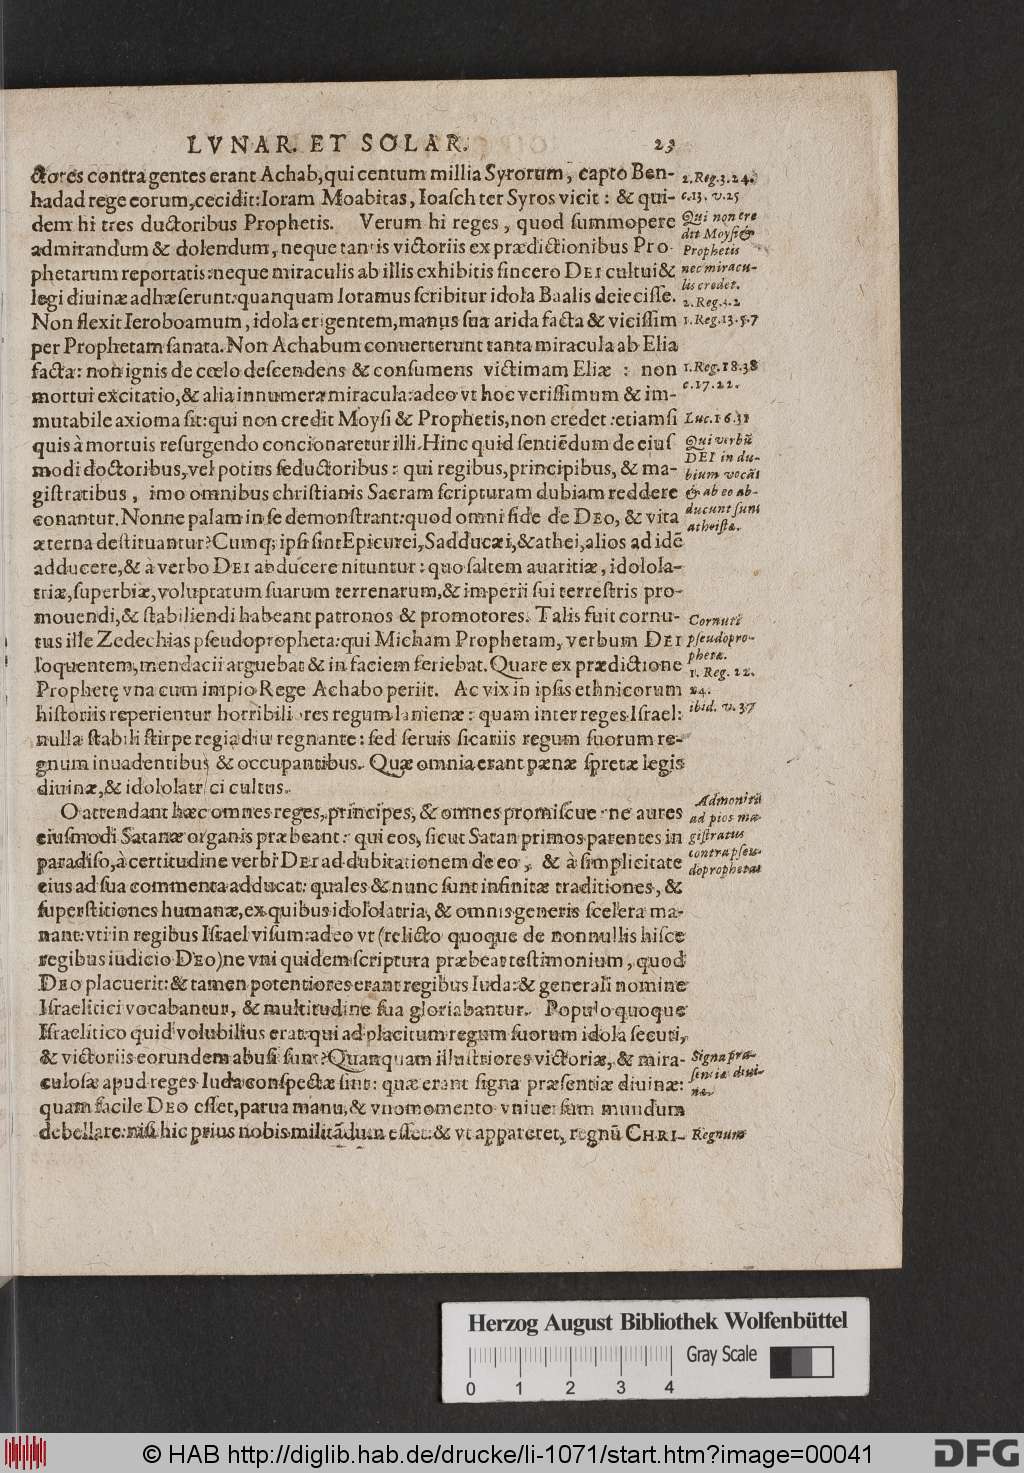 LVNAR. ET SOLAR. 23
ctores contra gentes erant Achab, qui centum millia Syrorum, capto Ben-
hadad rege eorum, cecidit: Ioram Moabitas, Ioasch ter Syros vicit: & qui-
dem hi tres ductoribus Prophetis. Verum hi reges, quod summopere
admirandum & dolendum, neque tantis victoriis ex prædictionibus Pro-
phetarum reportatis: neque miraculis ab illis exhibitis sincero DEI cultui &
legi diuinæ adhæserunt: quanquam Ioramus scribitur idola Baalis deiecisse.
Non flexit Ieroboamum, idola erigentem, manus sua arida facta & vicissim
per Prophetam sanata. Non Achabum conuerterunt tanta miracula ab Elia
facta: non ignis de cœlo descendens & consumens victimam Eliæ: non
mortui excitatio, & alia innumera miracula: adeo vt hoc verissimum & im-
mutabile axioma sit: qui non credit Moysi & Prophetis, non credet: etiamsi
quis à mortuis resurgendo concionaretur illi. Hinc quid sentiēdum de eius
modi doctoribus, vel potius seductoribus: qui regibus, principibus, & ma-
gistratibus, imo omnibus christianis Sacram scripturam dubiam reddere
conantur. Nonne palam in se demonstrant: quod omni fide de DEO, & vita
æterna destituantur? Cumq; ipsi sint Epicurei, Sadducæi, & athei, alios ad idē
adducere, & à verbo DEI abducere nituntur: quo saltem auaritiæ, idolola-
triæ, superbiæ, voluptatum suarum terrenarum, & imperii sui terrestris pro-
mouendi, & stabiliendi habeant patronos & promotores. Talis fuit cornu-
tus ille Zedechias pseudopropheta: qui Micham Prophetam, verbum DEI
loquentem, mendacii arguebat & in faciem feriebat. Quare ex prædictione
Prophetę vna cum impio Rege Achabo periit. Ac vix in ipsis ethnicorum
historiis reperientur horribiliores regum lanienæ: quam inter reges Israel:
nulla stabili stirpe regia diu regnante: sed seruis sicariis regum suorum re-
gnum inuadentibus & occupantibus. Quæ omnia erant pænæ spretæ legis
diuinæ, & idololatrici cultus.
O attendant hæc omnes reges, principes, & omnes promiscue: ne aures
eiusmodi Satanæ organis præbeant: qui eos, sicut Satan primos parentes in
paradiso, à certitudine verbi DEI ad dubitationem de eo, & à simplicitate
eius ad sua commenta adducat: quales & nunc sunt infinitæ traditiones, &
superstitiones humanæ, ex quibus idololatria, & omnis generis scelera ma-
nant: vti in regibus Israel visum: adeo vt (relicto quoque de nonnullis hisce
regibus iudicio DEO) ne vni quidem scriptura præbeat testimonium, quod
DEO placuerit: & tamen potentiores erant regibus Iuda: & generali nomine
Israelitici vocabantur, & multitudine sua gloriabantur. Populo quoque
Israelitico quid volubilius erat: qui ad placitum regum suorum idola secuti,
& victoriis eorundem abusi sunt? Quanquam illustriores victoriæ, & mira-
culosæ apud reges Iuda conspectæ sint: quæ erant signa præsentiæ diuinæ:
quam facile DEO esset, parua manu, & vno momento vniuersum mundum
debellare: nisi hic prius nobis militādum esset: & vt appareret, regnū CHRI-
2. Reg. 3. 24.
c. 13. v. 25
Qui non cre
dit Moysi &
Prophetis
nec miracu-
lis credet.
2. Reg. 3. 2
1. Reg. 13. 5. 7
1. Reg. 18. 38
c. 17. 22.
Luc. 16. 31
Qui verbū
DEI in du-
bium vocāt
& ab eo ab-
ducunt sunt
atheistæ.
Cornuti
pseudopro-
phetæ.
1. Reg. 22.
24.
ibid. v. 37
Admonitū
ad pios ma-
gistratus
contra pseu-
doprophetas
Signa præ-
sentiæ diui-
næ
Regnum
Herzog August Bibliothek Wolfenbüttel
Gray Scale
0 1 2 3 4
© HAB http://diglib.hab.de/drucke/li-1071/start.htm?image=00041
DFG